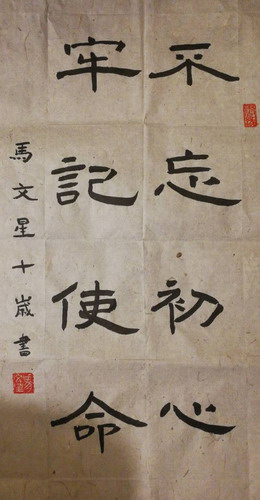 不忘初心
牢記使命
馬文星十歲書